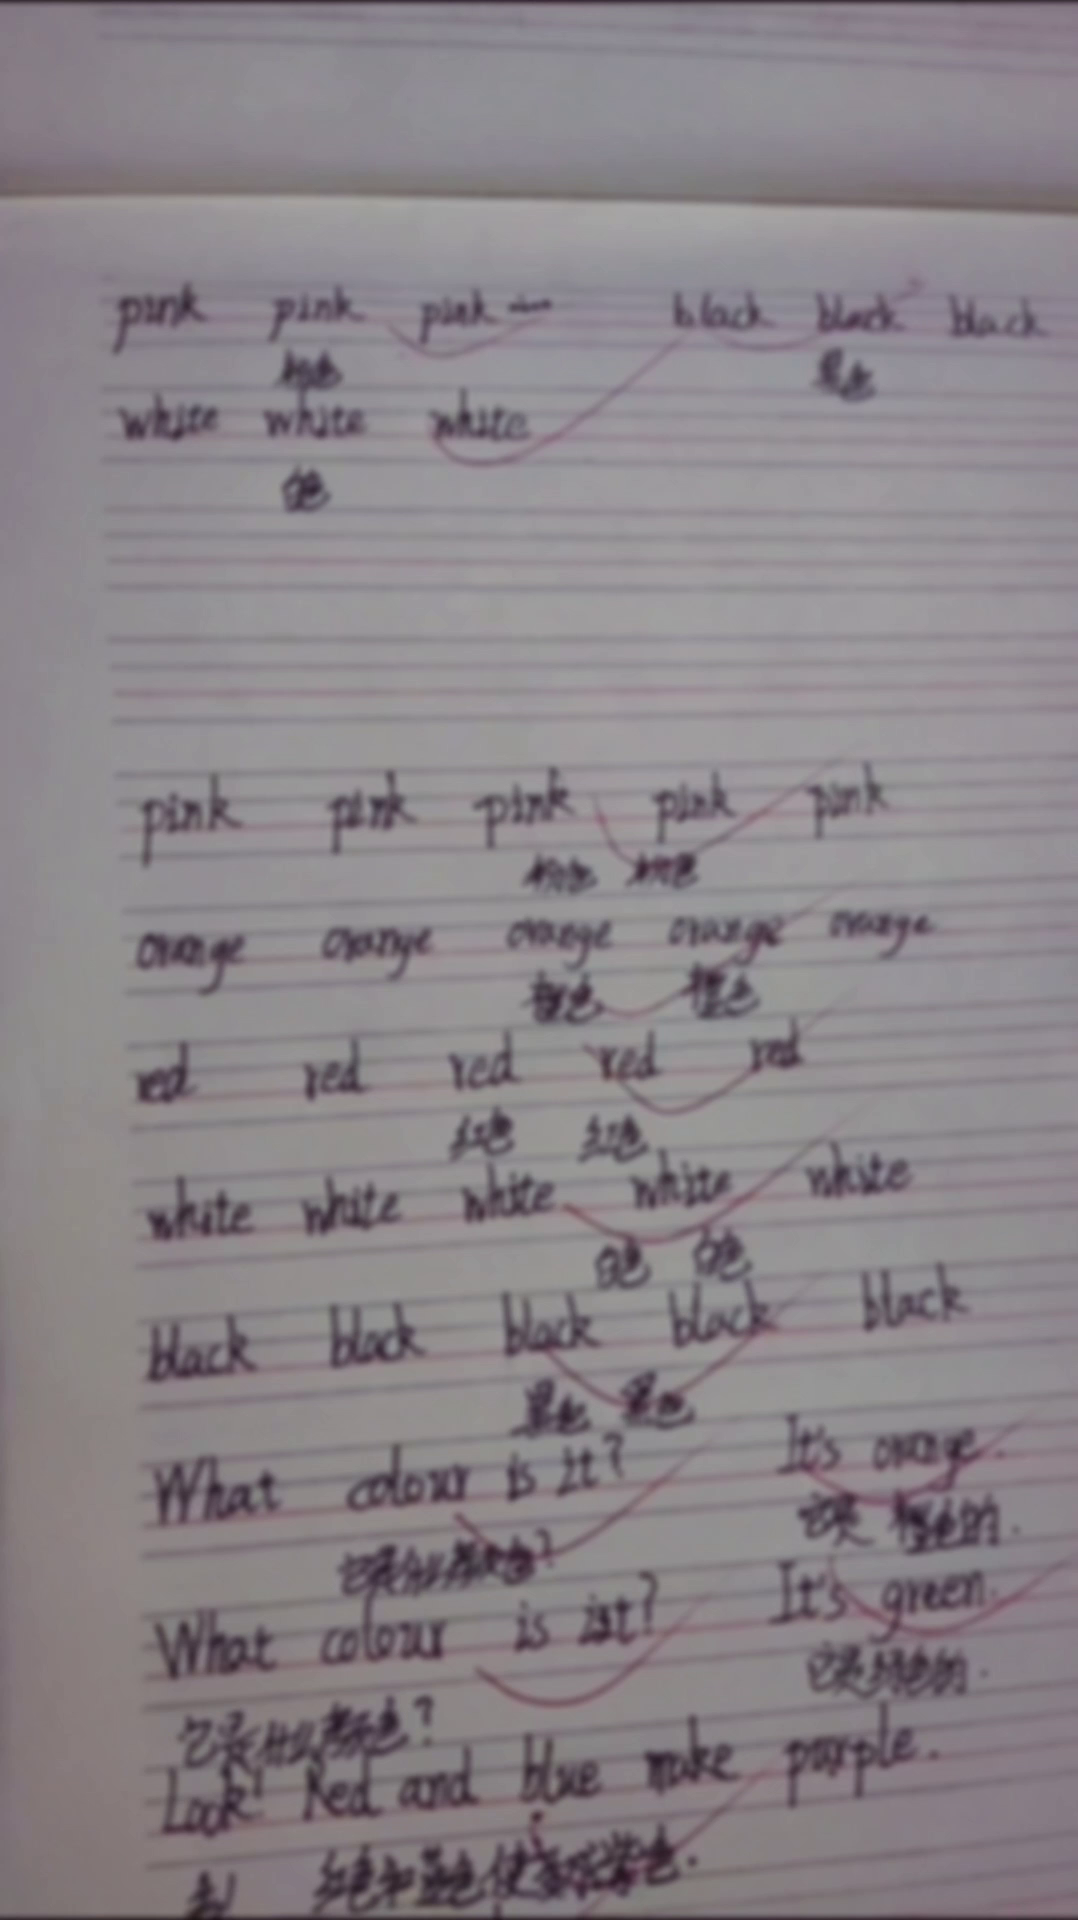 pink pink pink black black black
粉色 黑色
white white white
白色
pink pink pink pink pink
粉色 粉色
orange orange orange orange orange
橙色 橙色
red red red red red
红色 红色
white white white white white
白色 白色
black black black black black
黑色 黑色
What colour is it? It's orange.
它是什么颜色? 它是 橙色的.
What colour is ist? It's green.
它是什么颜色? 它是绿色的.
Look! Red and blue make purple.
看! 红色和蓝色使 紫色.